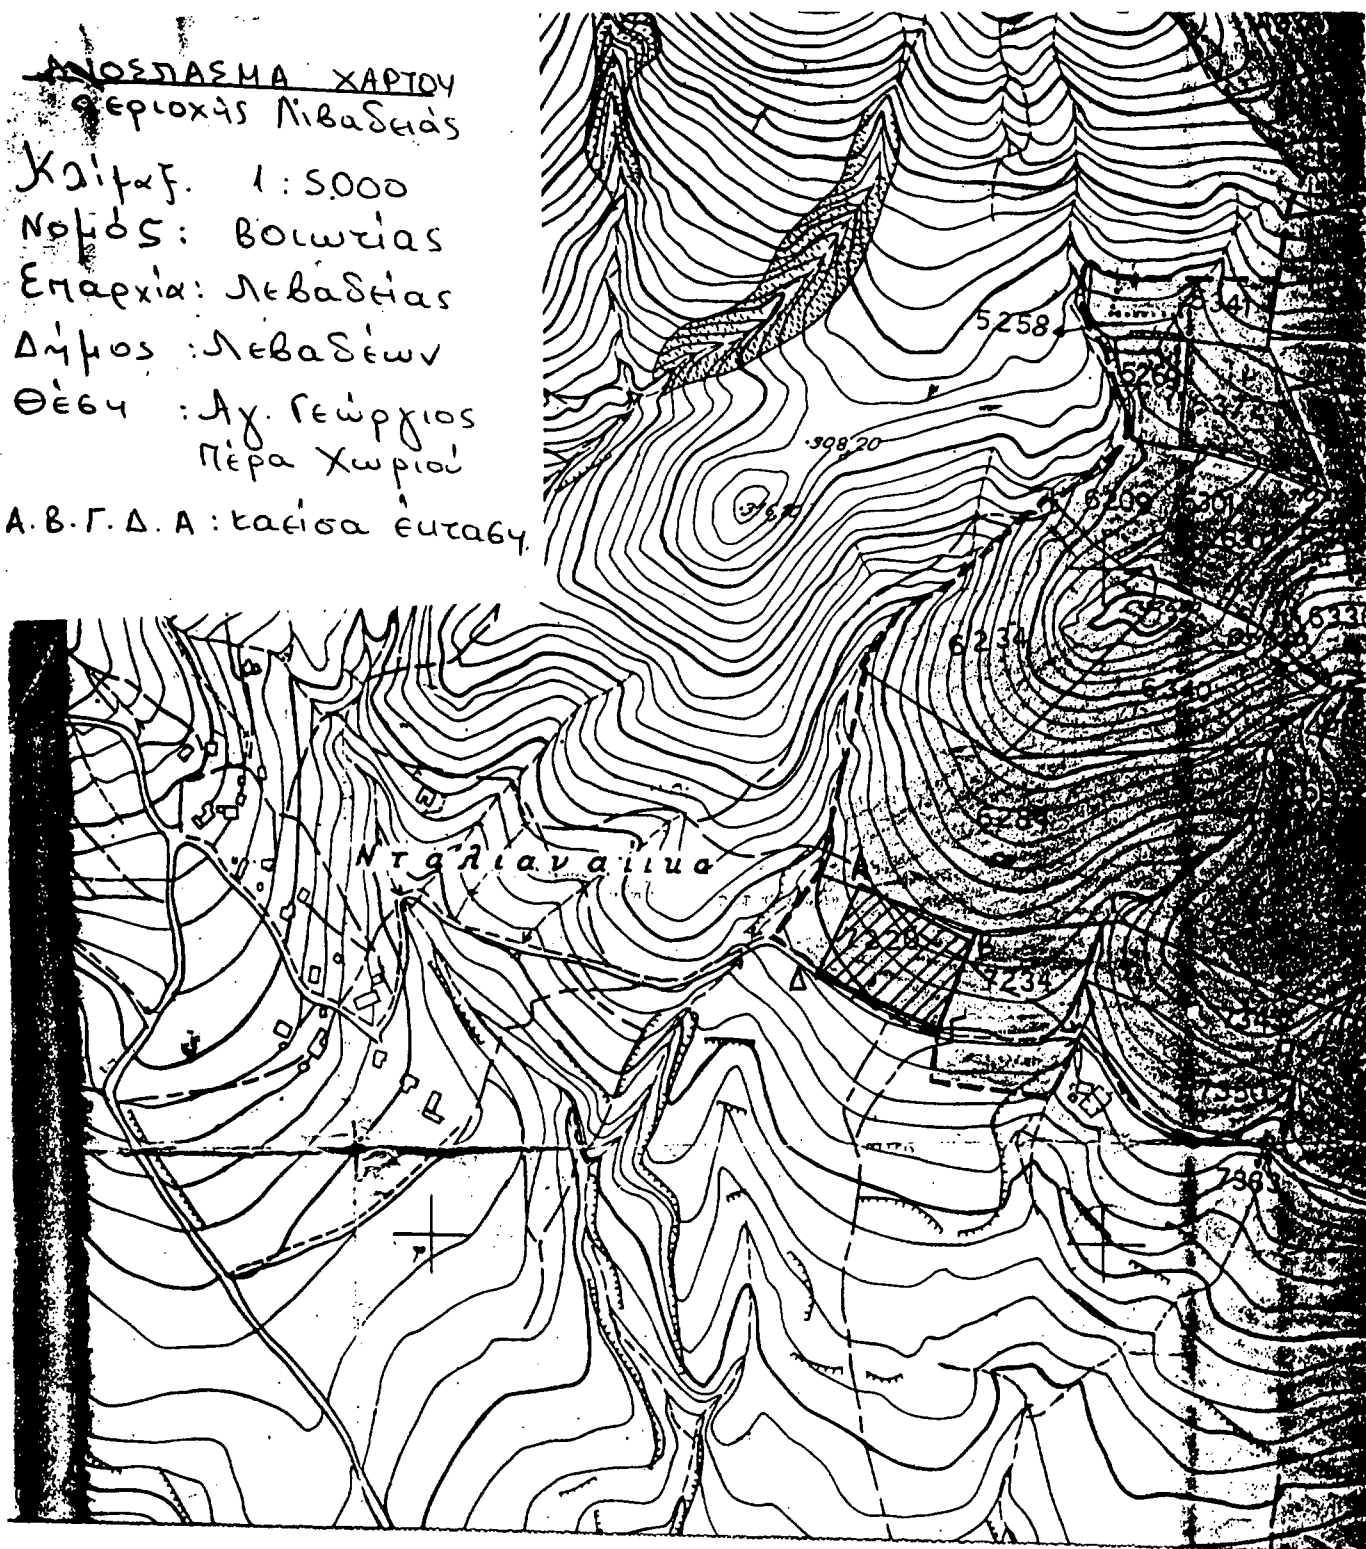 ΑΠΟΣΠΑΣΜΑ ΧΑΡΤΟΥ
περιοχής Λιβαδειάς
Κλίμαξ. 1:5.000
Νομός: Βοιωτίας
Επαρχία: Λεβαδείας
Δήμος : Λεβαδέων
Θέση : Αγ. Γεώργιος
Πέρα Χωριού
Α.Β.Γ.Δ.Α: καείσα έκταση.
5258
398,20
6209
6301
6234
6340
Νταλιαναίικα
Α
Β
7234
Δ
Γ
7350
7363